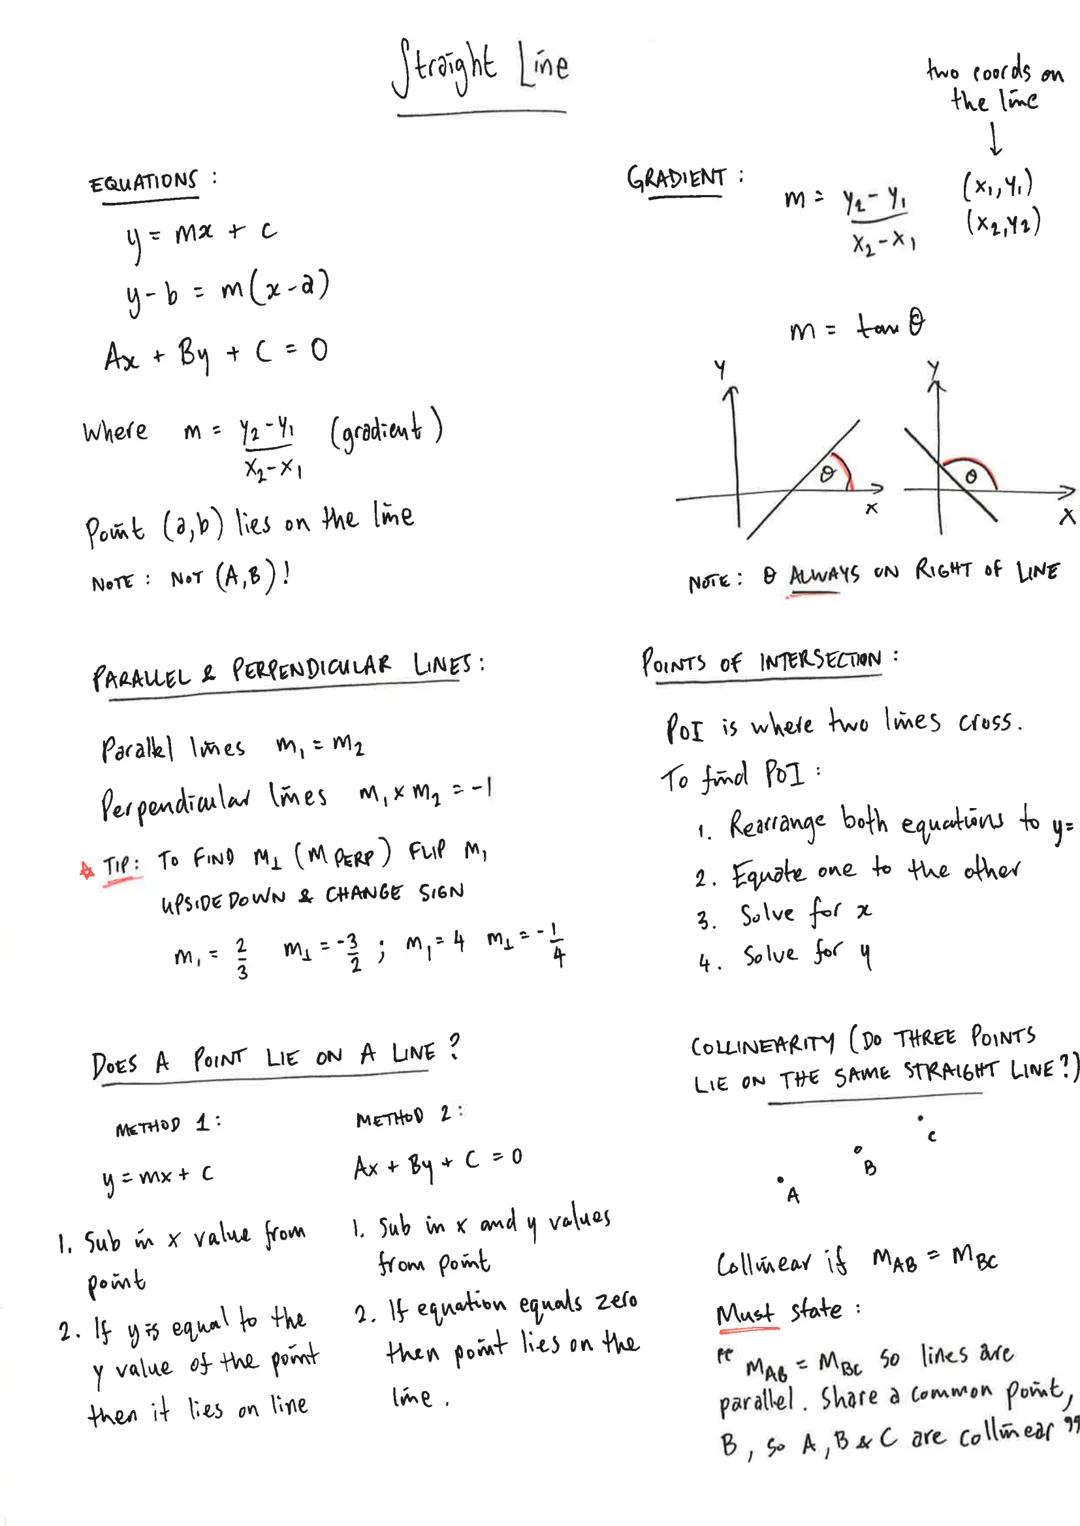 Straight Line
EQUATIONS :
y = mx + c
y-b = m(x-a)
Ax + By + C = 0
Where m = y₂-y₁/x₂-x₁ (gradient)
Point (a,b) lies on the line
NOTE : NOT (A,B)!
two coords on
the line
↓
GRADIENT :
m = y₂-y₁/x₂-x₁
(x₁,y₁)
(x₂,y₂)
m = tan θ
y
θ
x
y
θ
x
NOTE: θ ALWAYS ON RIGHT OF LINE
PARALLEL & PERPENDICULAR LINES:
Parallel lines m₁ = m₂
Perpendicular lines m₁ x m₂ = -1
☆ TIP: TO FIND m⊥ (m PERP) FLIP m₁
UPSIDE DOWN & CHANGE SIGN
m₁ = 2/3 m⊥ = -3/2 ; m₁ = 4 m⊥ = -1/4
POINTS OF INTERSECTION :
PoI is where two lines cross.
To find PoI :
1. Rearrange both equations to y=
2. Equate one to the other
3. Solve for x
4. Solve for y
DOES A POINT LIE ON A LINE ?
METHOD 1:
y = mx + c
1. Sub in x value from
point
2. If y is equal to the
y value of the point
then it lies on line
METHOD 2:
Ax + By + C = 0
1. Sub in x and y values
from point
2. If equation equals zero
then point lies on the
line.
COLLINEARITY (DO THREE POINTS
LIE ON THE SAME STRAIGHT LINE?)
C
B
A
Collinear if mAB = mBC
Must state :
"mAB = mBC so lines are
parallel. Share a common point,
B, so A, B & C are collinear"